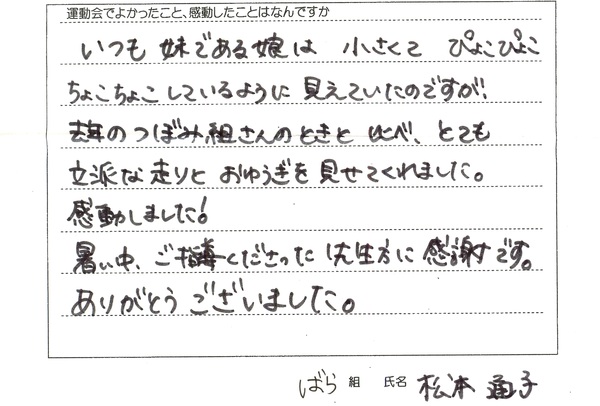 運動会でよかったこと、感動したことはなんですか
いつも 妹である娘は 小さくて ぴょこぴょこ
ちょこちょこしているように 見えていたのですが、
去年のつぼみ組さんのときと 比べ、とても
立派な走りと おゆうぎを見せてくれました。
感動しました!
暑い中、ご指導くださった 先生方に 感謝です。
ありがとうございました。
ばら 組 氏名 松本 通子